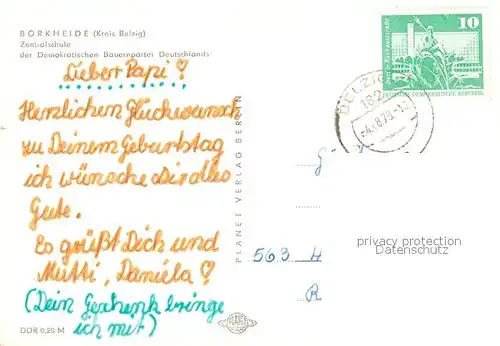 BORKHEIDE (Kreis Belzig)
Zentralschule
der Demokratischen Bauernpartei Deutschlands
Lieber Papi ♡
Herzlichen Glückwunsch
zu Deinem Geburtstag
ich wünsche dir alles
Gute.
Es grüßt Dich und
Mutti, Daniela ♡
(Dein Geschenk bringe
ich mit)
DDR 0,20 M
PLANET VERLAG BERLIN
10
DEUTSCHE DEMOKRATISCHE REPUBLIK
BELZIG
563 H
R
privacy protection
Datenschutz